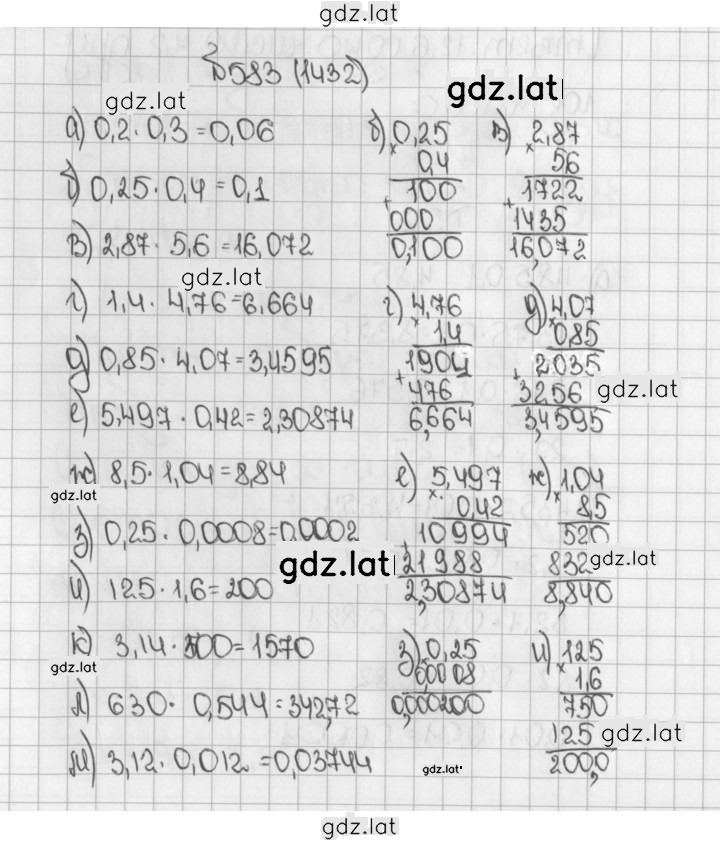 gdz.latl
№583 (1432)
gdz.lat
gdz.lat
а) 0,2 · 0,3 = 0,06
б) 0,25 · 0,4 = 0,1
в) 2,87 · 5,6 = 16,072
gdz.lat
г) 1,4 · 4,76 = 6,664
д) 0,85 · 4,07 = 3,4595
е) 5,497 · 0,42 = 2,30874
ж) 8,5 · 1,04 = 8,84
gdz.lat
з) 0,25 · 0,0008 = 0,0002
и) 125 · 1,6 = 200
к) 3,14 · 500 = 1570
gdz.lat
л) 630 · 0,544 = 342,72
м) 3,12 · 0,012 = 0,03744
б) 0,25
× 0,4
100
+
000
0,100
в) 2,87
× 56
1722
+
1435
16,072
г) 4,76
× 1,4
1904
+
476
6,664
д) 4,07
× 0,85
2035
+
3256
gdz.lat
3,4595
е) 5,497
× 0,42
10994
+
21988
gdz.lat
2,30874
ж) 1,04
× 8,5
520
832
gdz.lat
8,840
з) 0,25
× 0,0008
0,000200
и) 125
× 1,6
750
125
gdz.lat
200,0
gdz.lat
gdz.lat